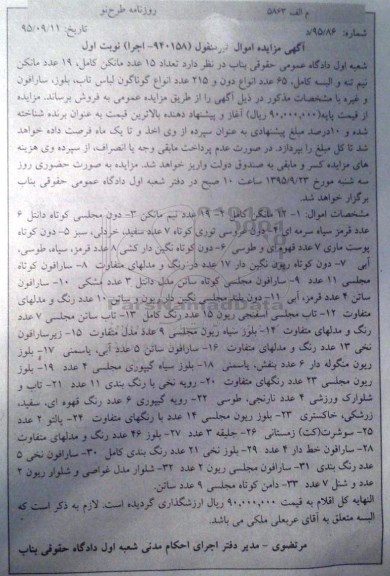 م الف ۵۸۶۳ روزنامه طرح‌نو
شماره: ۹۵/۸۶/د تاریخ: ۹۵/۰۹/۱۱
آگهی مزایده اموال غیرمنقول (۹۴۰۱۵۸- اجرا) نوبت اول
شعبه اول دادگاه عمومی حقوقی بناب در نظر دارد تعداد ۱۵ عدد مانکن کامل، ۱۹ عدد مانکن
نیم تنه و البسه کامل، ۶۵ عدد انواع دون و ۲۱۵ عدد انواع گوناگون لباس تاب، بلوز، سارافون
و غیره با مشخصات مذکور در ذیل آگهی را از طریق مزایده عمومی به فروش بوساند. مزایده
از قیمت پایه (۹۰,۰۰۰,۰۰۰ ریال) آغاز و پیشنهاد دهنده بالاترین قیمت به عنوان برنده شناخته
شده و ۱۰درصد مبلغ پیشنهادی به عنوان سپرده از وی اخذ و تا یک ماه فرصت داده خواهد
شد تا کل مبلغ را بپردازد. در صورت عدم پرداخت مابقی وجه یا انصراف، از سپرده وی هزینه
های مزایده کسر و مابقی به صندوق دولت واریز خواهد شد. مزایده به صورت حضوری روز
سه شنبه مورخ ۱۳۹۵/۹/۲۳ ساعت ۱۰ صبح در دفتر شعبه اول دادگاه عمومی حقوقی بناب
برگزار خواهد شد.
مشخصات اموال: ۱- ۱۲ مانکن کامل ۲- ۱۹ عدد نیم مانکن ۳- دون مجلسی کوتاه دانتل ۶
عدد قرمز سیاه سرمه ای ۴- دون عروسی توری کوتاه ۷ عدد سفید، خردلی، سبز ۵- دون کوتاه
پوست ماری ۷ عدد قهوه ای و طوسی ۶- دون کوتاه نگین دار کشی ۸ عدد قرمز، سیاه، طوسی،
آبی ۷- دون کوتاه ریون نگین دار ۱۷ عدد در رنگ و مدلهای متفاوت ۸- سارافون کوتاه
مجلسی ۱۱ عدد ۹- سارافون مجلسی کوتاه ساتن مدل دانتل ۳ عدد مشکی ۱۰- سارافون
ساتن ۴ عدد قرمز، آبی ۱۱- دون بلند مجلسی نگین دار ریون و ساتن ۱۰ عدد رنگ و مدلهای
متفاوت ۱۲- تاب مجلسی اسفنجی ریون ۱۵ عدد رنگ کامل ۱۳- تاب ساتن مجلسی ۷ عدد
رنگ و مدلهای متفاوت ۱۴- بلوز سیاه ریون مجلسی ۹ عدد مدل متفاوت ۱۵- زیرسارافون
نخی ۱۳ عدد رنگ و مدلهای متفاوت ۱۶- سارافون ساتن ۵ عدد آبی، یاسمنی ۱۷- بلوز
ریون منگوله دار ۶ عدد بنفش، یاسمنی ۱۸- بلوز سیاه گیپوری مجلسی ۴ عدد ۱۹- بلوز
ریون مجلسی ۲۳ عدد رنگهای متفاوت ۲۰- رویه نخی با رنگ بندی ۱۱ عدد ۲۱- تاب و
شلوارک ورزشی ۴ عدد نارنجی، طوسی ۲۲- رویه گیپوری ۶ عدد رنگ قهوه ای، سفید،
زرشکی، خاکستری ۲۳- بلوز ریون مجلسی ۱۴ عدد با رنگهای متفاوت ۲۴- پالتو ۲ عدد
۲۵- سوشرت(کت) زمستانی ۲۶- جلیقه ۳ عدد ۲۷- بلوز ۴۶ عدد رنگ و مدلهای متفاوت
۲۸- سارافون خط دار ۴ عدد ۲۹- بلوز نخی ۲۱ عدد رنگ بندی کامل ۳۰- سارافون نخی ۵
عدد رنگ بندی ۳۱- سارافون مجلسی ریون ۲ عدد ۳۲- شلوار مدل غواصی و شلوار ریون ۲
عدد و شنل ۷ عدد ۳۳- دامن کوتاه مجلسی ۹ عدد ساتن.
النهایه کل اقلام به قیمت ۹۰,۰۰۰,۰۰۰ ریال ارزشگذاری گردیده است. لازم به ذکر است که
البسه متعلق به آقای عربعلی ملکی می باشد.
مرتضوی - مدیر دفتر اجرای احکام مدنی شعبه اول دادگاه حقوقی بناب